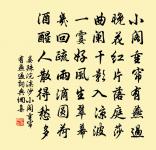 小閣重帘有燕過
晚花紅片落庭莎
曲闌干影入涼波
一霎好風生翠幕
幾回疏雨滴圓荷
酒醒人散得愁多
晏殊浣溪沙小閣重帘
有燕過詞典網集